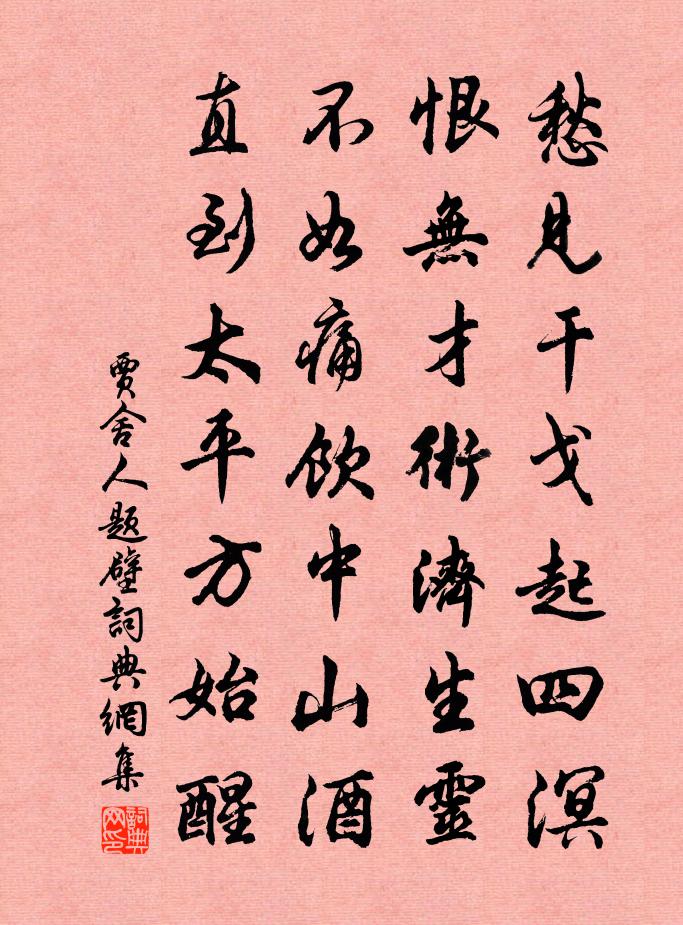 愁見干戈起四溟
恨無才術濟生靈
不如痛飲中山酒
直到太平方始醒
賈舍人題壁詞典網集
詞典网印